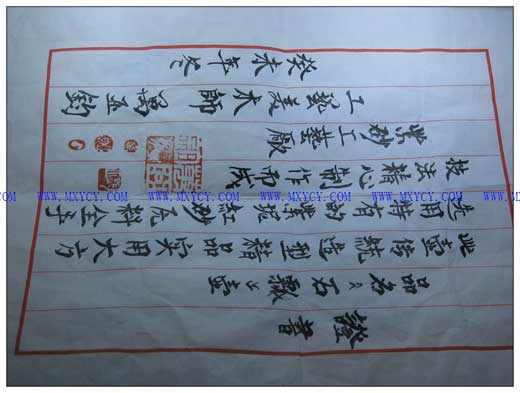 證書
品名 石瓢壺
此壺傳統造型精品實用大方
选用特有的紫泥紅砂原料全手
技法精心制作而成
紫砂工藝廠
工藝美术師 萬亚鈞
癸未年冬
WWW.MXYCY.COM WWW.MXYCY.COM WWW.MXYCY.COM WWW.MXYCY.COM